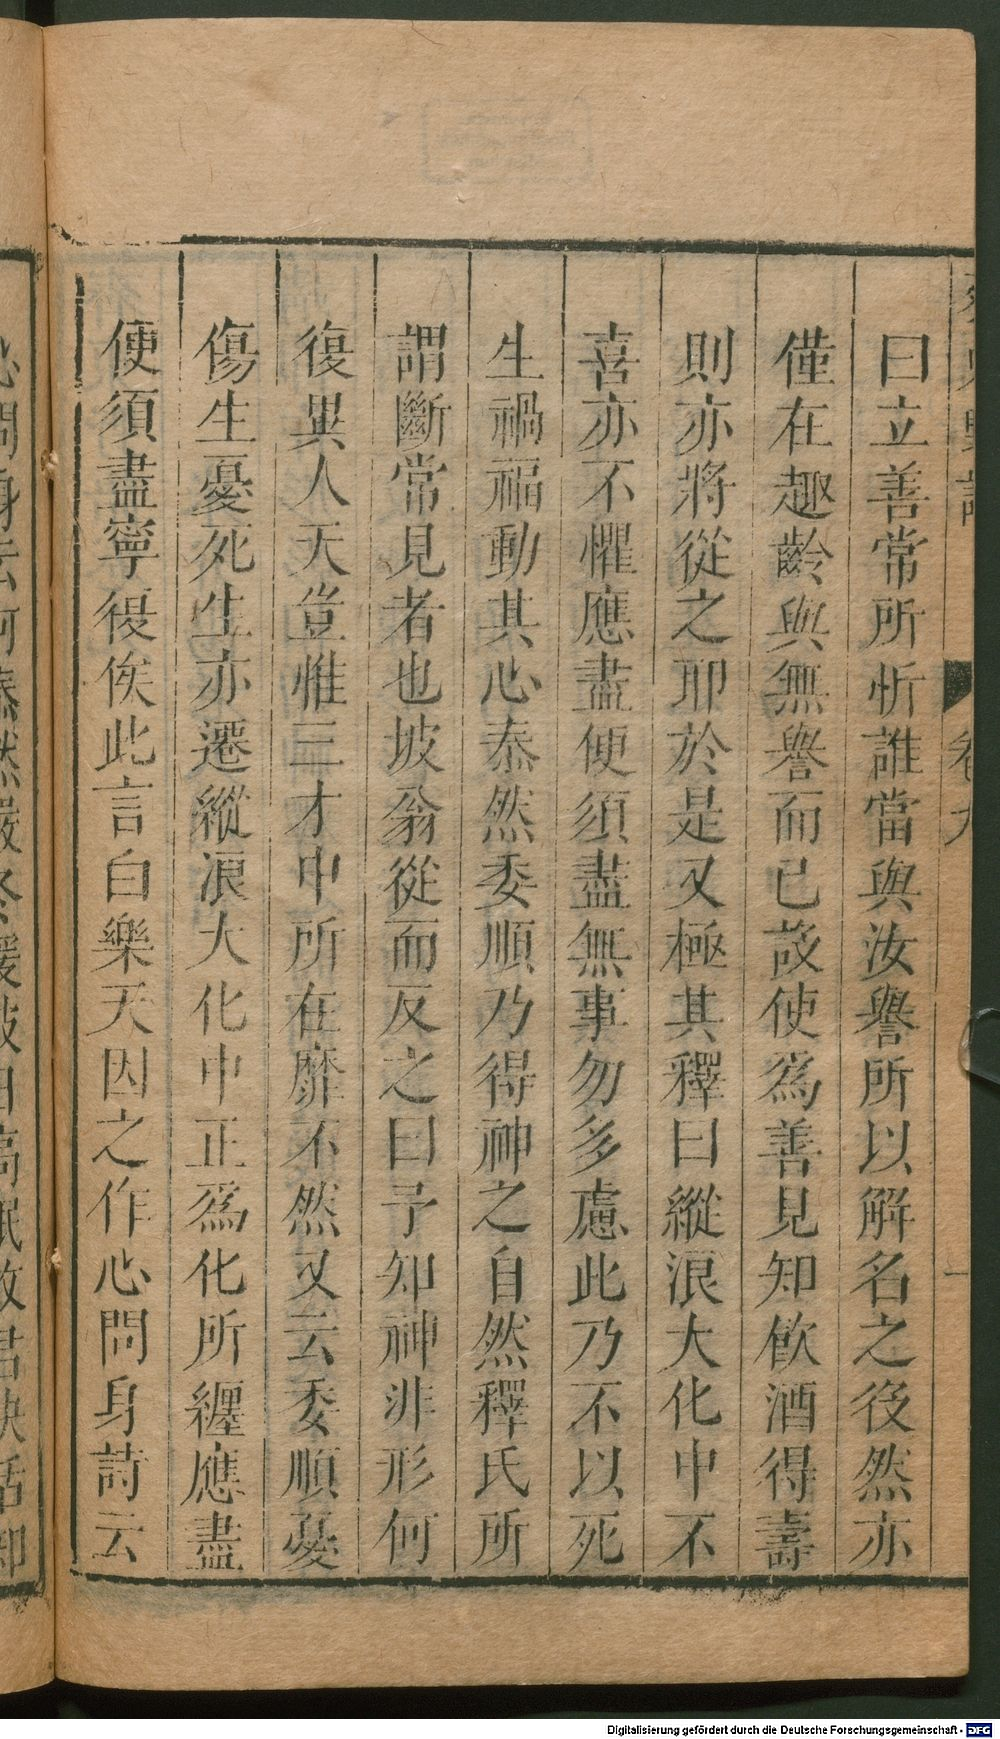 曰立善常所忻誰當與汝譽所以解名之役然亦
僅在趣齡與無譽而已設使爲善見知飮酒得壽
則亦將從之耶於是又極其釋曰縱浪大化中不
喜亦不懼應盡便須盡無事勿多慮此乃不以死
生禍福動其心泰然委順乃得神之自然釋氏所
謂斷常見者也坡翁從而反之曰予知神非形何
復異人天豈惟三才中所在靡不然又云委順憂
傷生憂死生亦遷縱浪大化中正爲化所纏應盡
便須盡寧復俟此言白樂天因之作心問身詩云
心問身云何泰然嚴冬暖被日高眠放君快活却
卷九
一
Digitalisierung gefördert durch die Deutsche Forschungsgemeinschaft - DFG